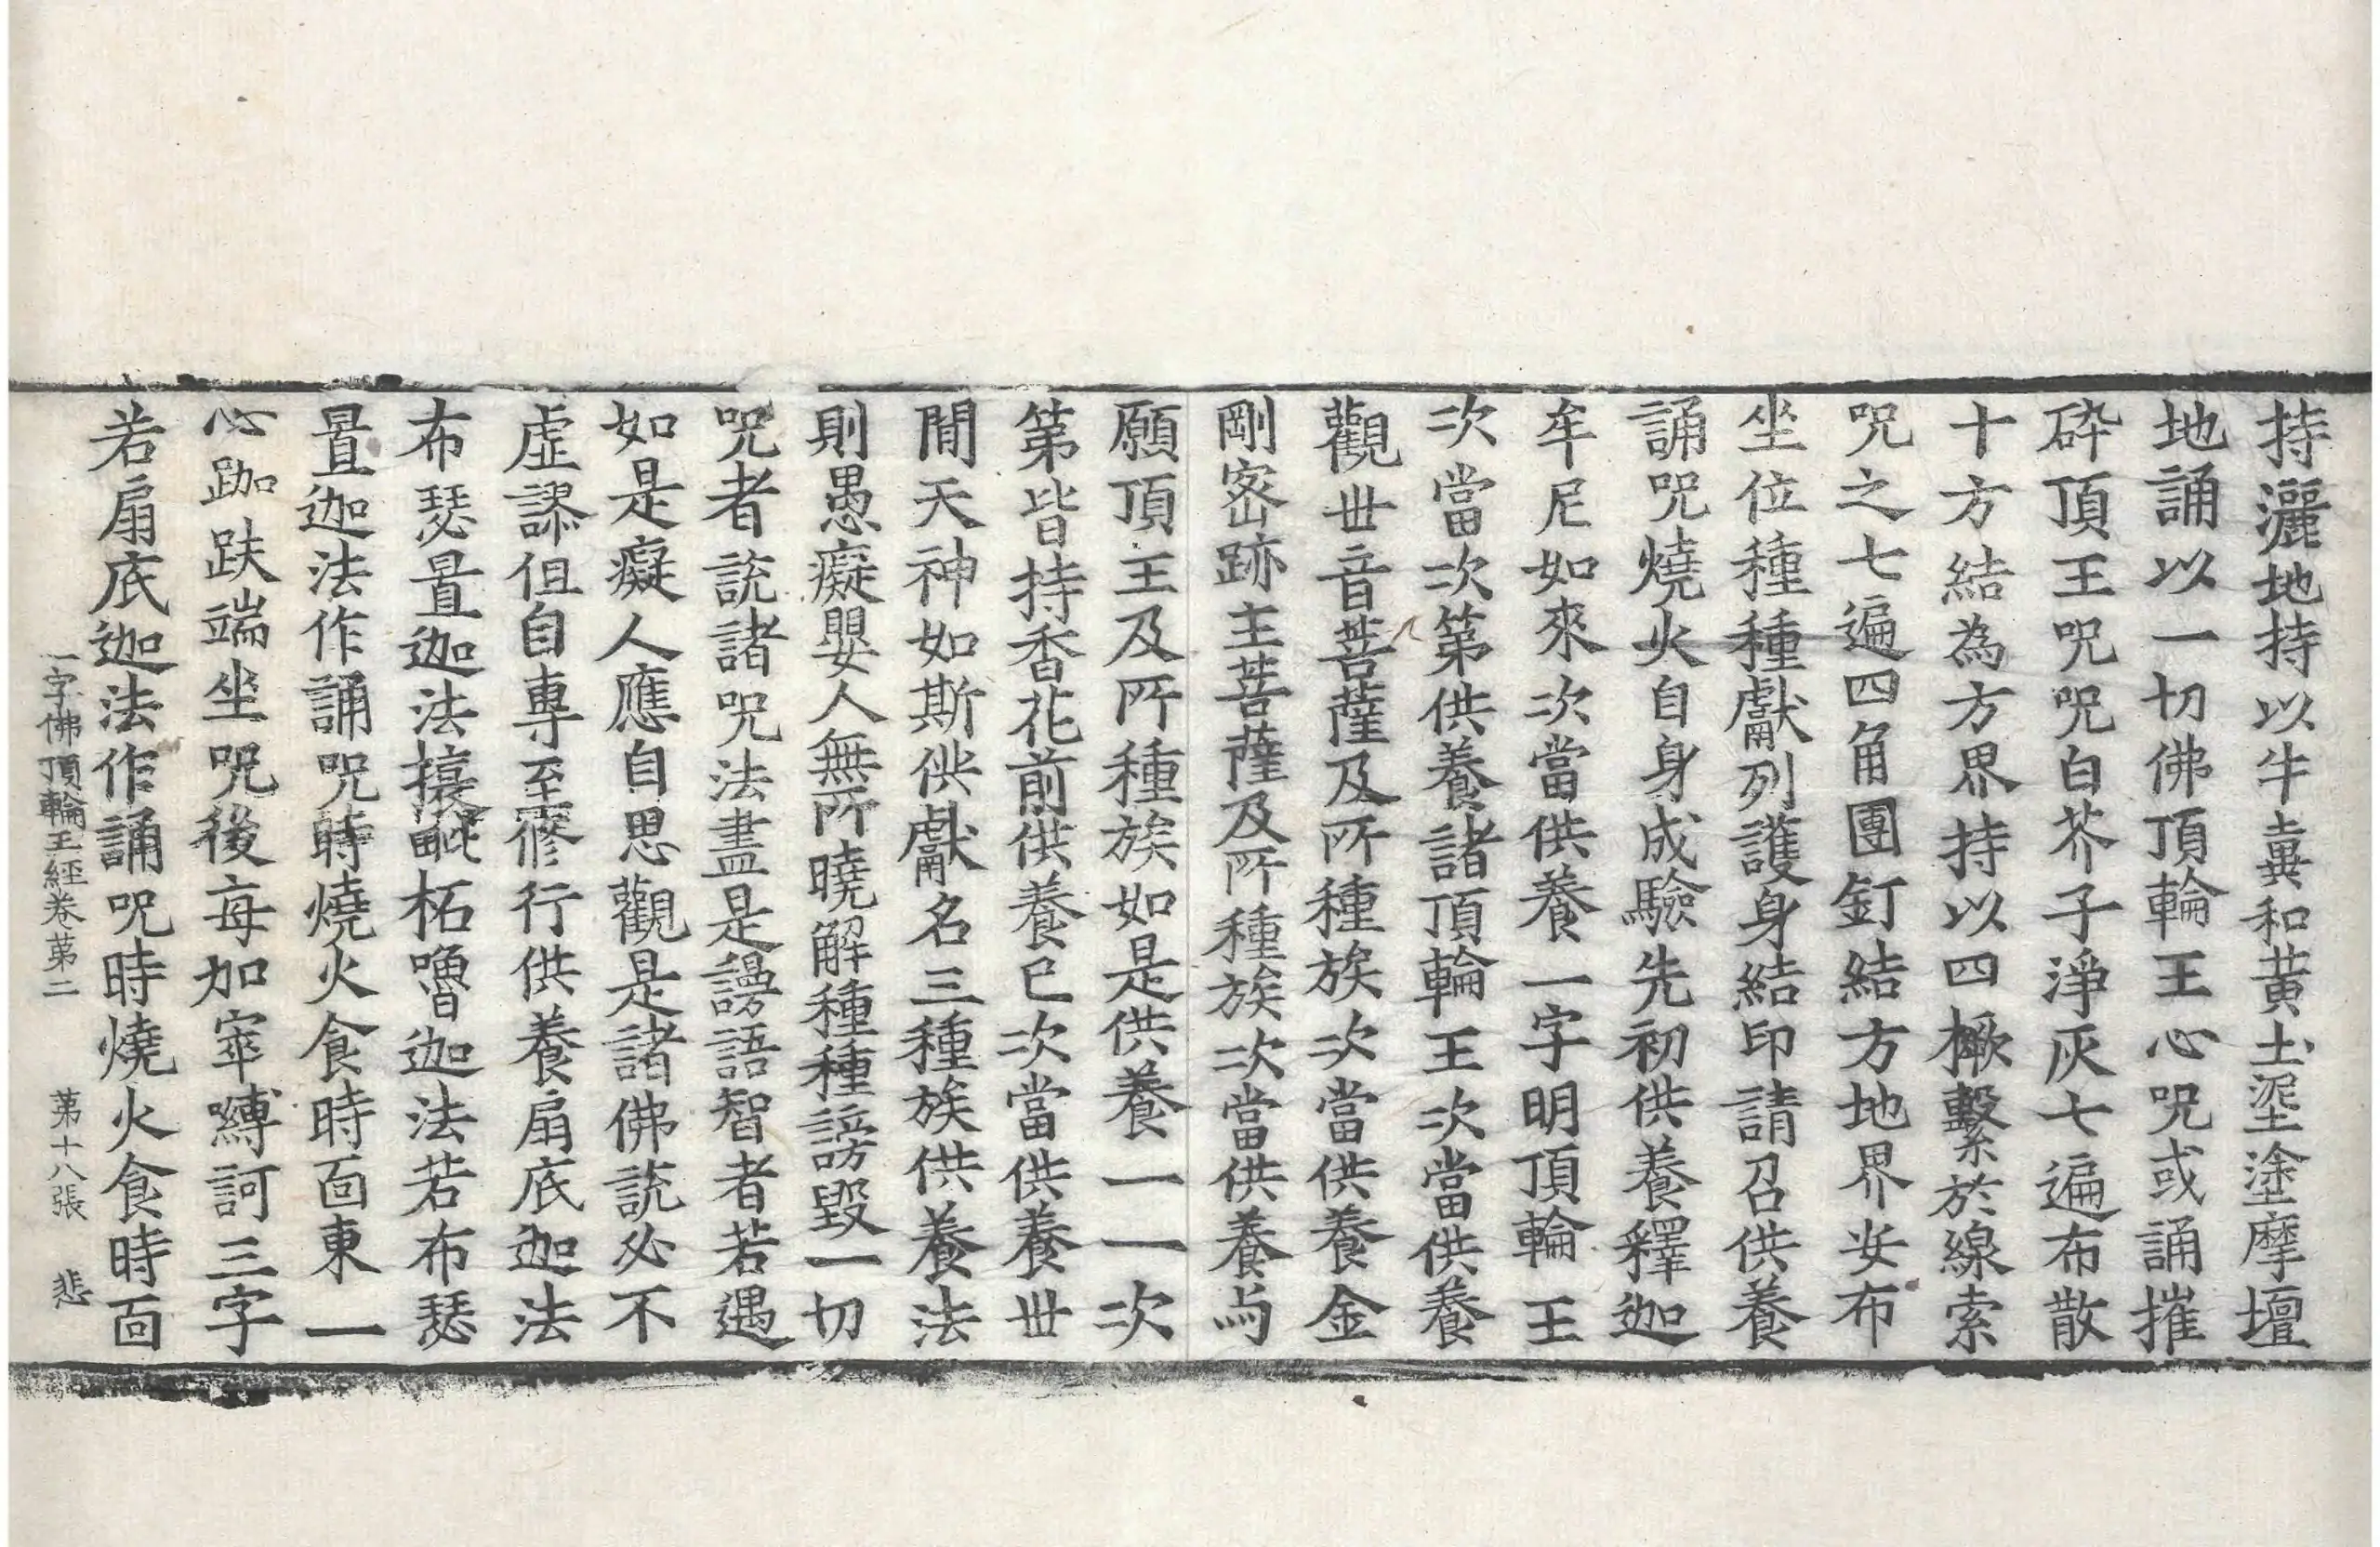 持灑地持以牛糞和黃土埿塗摩壇
地誦以一切佛頂輪王心呪或誦摧
碎頂王呪呪白芥子淨灰七遍布散
十方結為方界持以四橛繫於線索
呪之七遍四角團釘結方地界安布
坐位種種獻列護身結印請召供養
誦呪燒火自身成驗先初供養釋迦
牟尼如來次當供養一字明頂輪王
次當次第供養諸頂輪王次當供養
觀世音菩薩及所種族次當供養金
剛密跡主菩薩及所種族次當供養与
願頂王及所種族如是供養一一次
第皆持香花前供養已次當供養世
閒天神如斯供獻名三種族供養法
則愚癡嬰人無所曉解種種謗毀一切
呪者說諸呪法盡是謾語智者若遇
如是癡人應自思觀是諸佛說必不
虛謬但自專至修行供養扇底迦法
布瑟置迦法攘毗柘嚕迦法若布瑟
置迦法作誦呪時燒火食時面東一
心跏趺端坐呪後每加窣嚩訶三字
若扇底迦法作誦呪時燒火食時面
一字佛頂輪王經卷第二 第十八張 悲